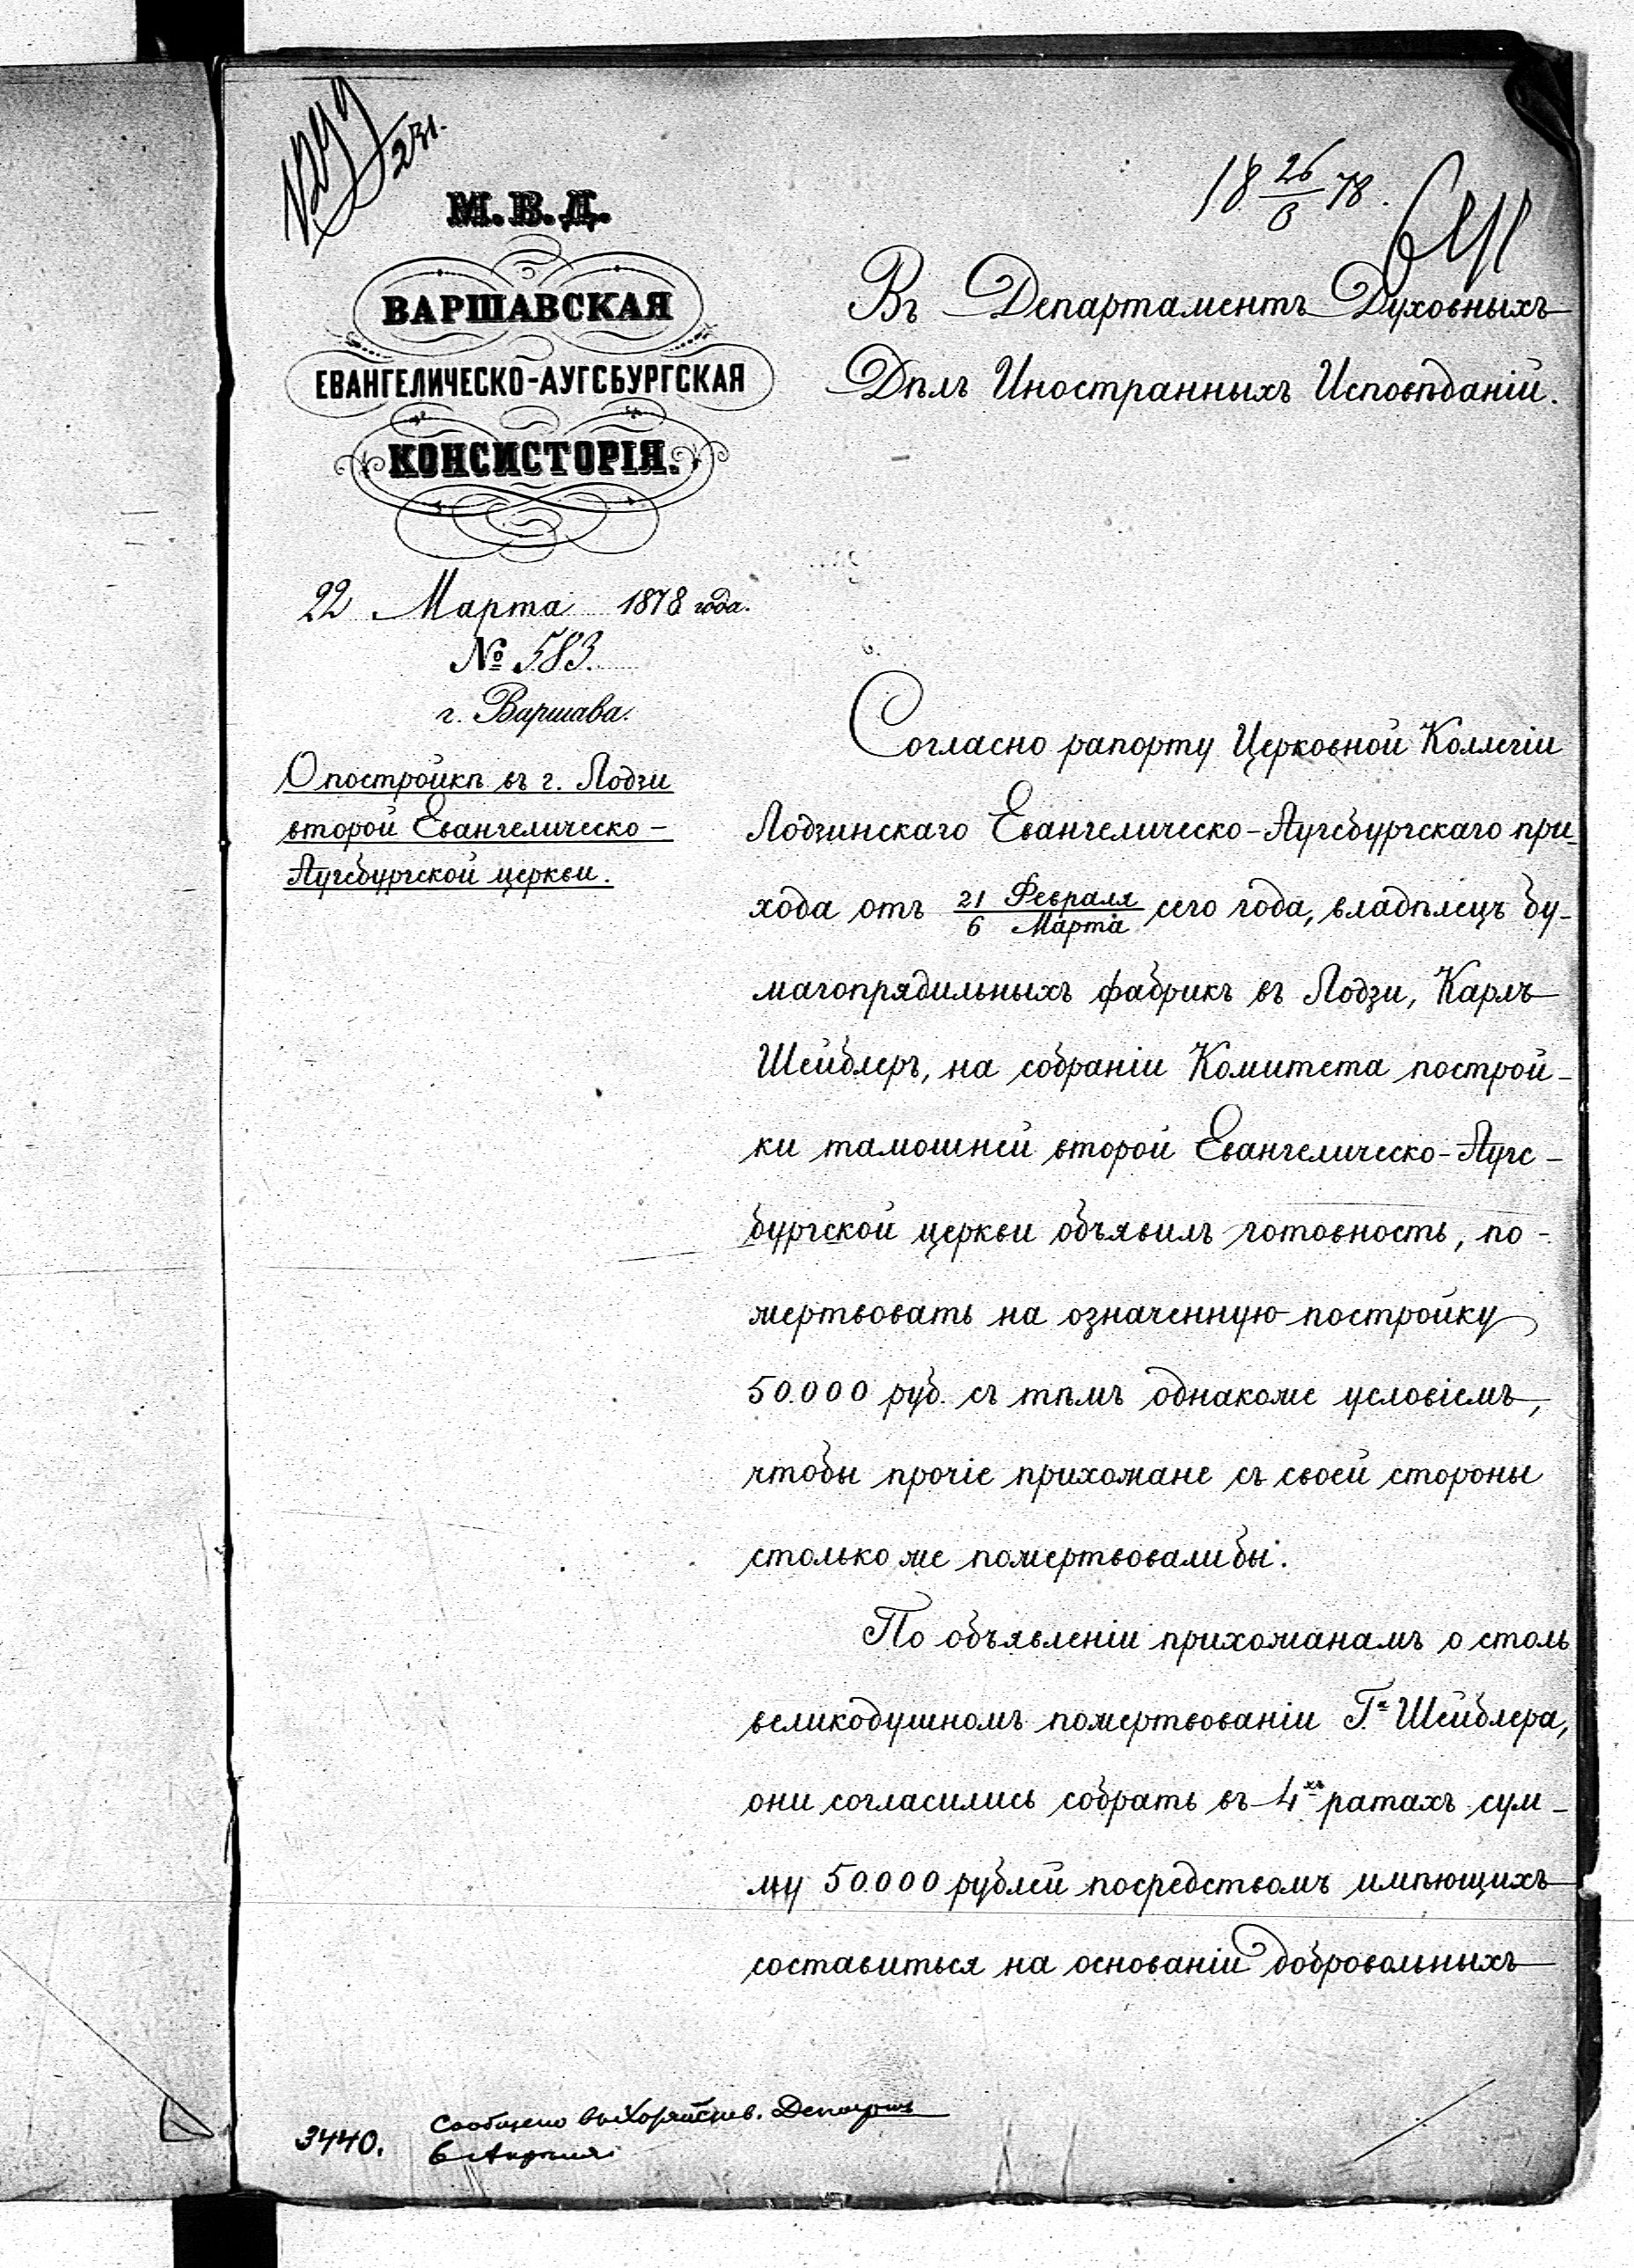 231.
18 26/3 78.
М. В. Д.
ВАРШАВСКАЯ
ЕВАНГЕЛИЧЕСКО-АУГСБУРГСКАЯ
КОНСИСТОРІЯ.
22 Марта 1878 года.
№ 583.
г. Варшава.
О постройкѣ въ г. Лодзи
второй Евангелическо-
Аугсбургской церкви.
Въ Департаментъ Духовныхъ
Дѣлъ Иностранныхъ Исповѣданій.
Согласно рапорту Церковной Коллегіи
Лодзинскаго Евангелическо-Аугсбургскаго при-
хода отъ 21 Февраля/6 Марта сего года, владѣлецъ бу-
магопрядильныхъ фабрикъ въ Лодзи, Карлъ
Шейблеръ, на собраніи Комитета построй-
ки тамошней второй Евангелическо-Аугс-
бургской церкви объявилъ готовность, по-
жертвовать на означенную постройку
50.000 руб. съ тѣмъ однакоже условіемъ,
чтобы прочіе прихожане съ своей стороны
столько же пожертвовали бы.
По объявленіи прихожанамъ о столь
великодушномъ пожертвованіи Г.а Шейблера,
они согласились собрать въ 4хъ ратахъ сум-
му 50.000 рублей посредствомъ имѣющихъ
составиться на основаніи добровольныхъ
3440.
Сообщено въ Хозяйств. Департ.
6 Апрѣля